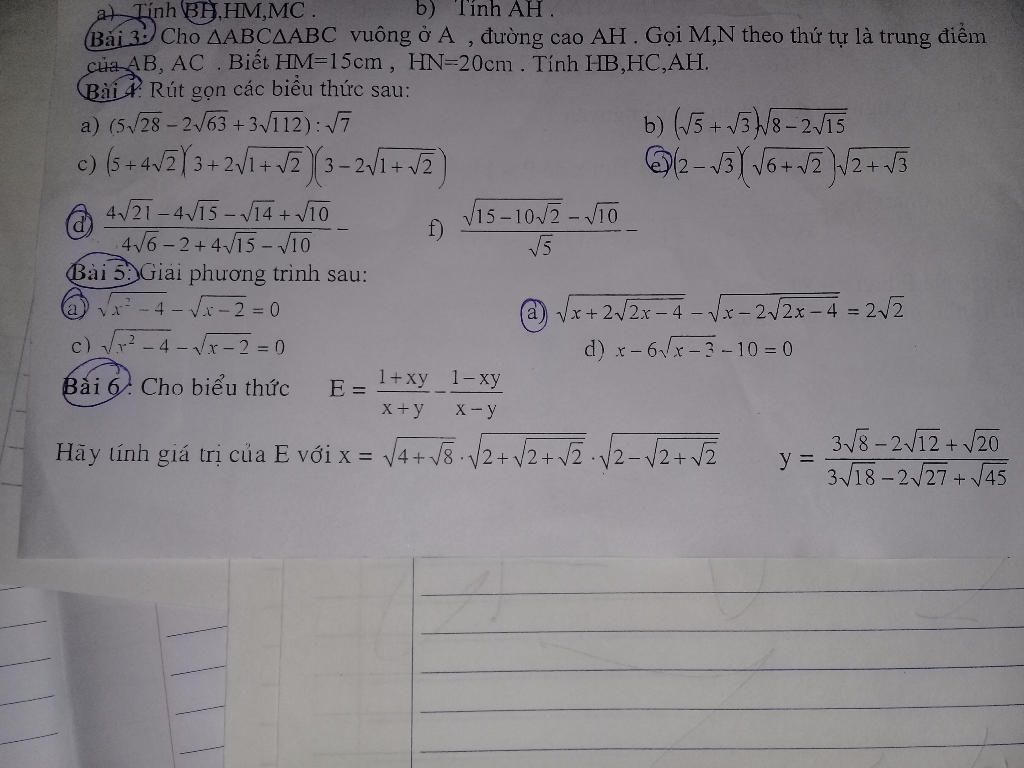 a) Tính BH,HM,MC . b) Tính AH .
Bài 3: Cho ΔABCΔABC vuông ở A , đường cao AH . Gọi M,N theo thứ tự là trung điểm
của AB, AC . Biết HM=15cm , HN=20cm . Tính HB,HC,AH.
Bài 4: Rút gọn các biểu thức sau:
a) (5√28 − 2√63 + 3√112) : √7 b) (√5 + √3)√(8 − 2√15)
c) (5 + 4√2)(3 + 2√(1 + √2))(3 − 2√(1 + √2)) e) (2 − √3)(√(6 + √2))√(2 + √3)
d) (4√21 − 4√15 − √14 + √10)/(4√6 − 2 + 4√15 − √10) − f) (√(15 − 10√2) − √10)/√5 −
Bài 5: Giải phương trình sau:
a) √(x² − 4) − √(x − 2) = 0 a) √(x + 2√(2x − 4)) − √(x − 2√(2x − 4)) = 2√2
c) √(x² − 4) − √(x − 2) = 0 d) x − 6√(x − 3) − 10 = 0
Bài 6 : Cho biểu thức E = (1 + xy)/(x + y) − (1 − xy)/(x − y)
Hãy tính giá trị của E với x = √(4 + √8) . √(2 + √(2 + √2)) . √(2 − √(2 + √2)) y = (3√8 − 2√12 + √20)/(3√18 − 2√27 + √45)